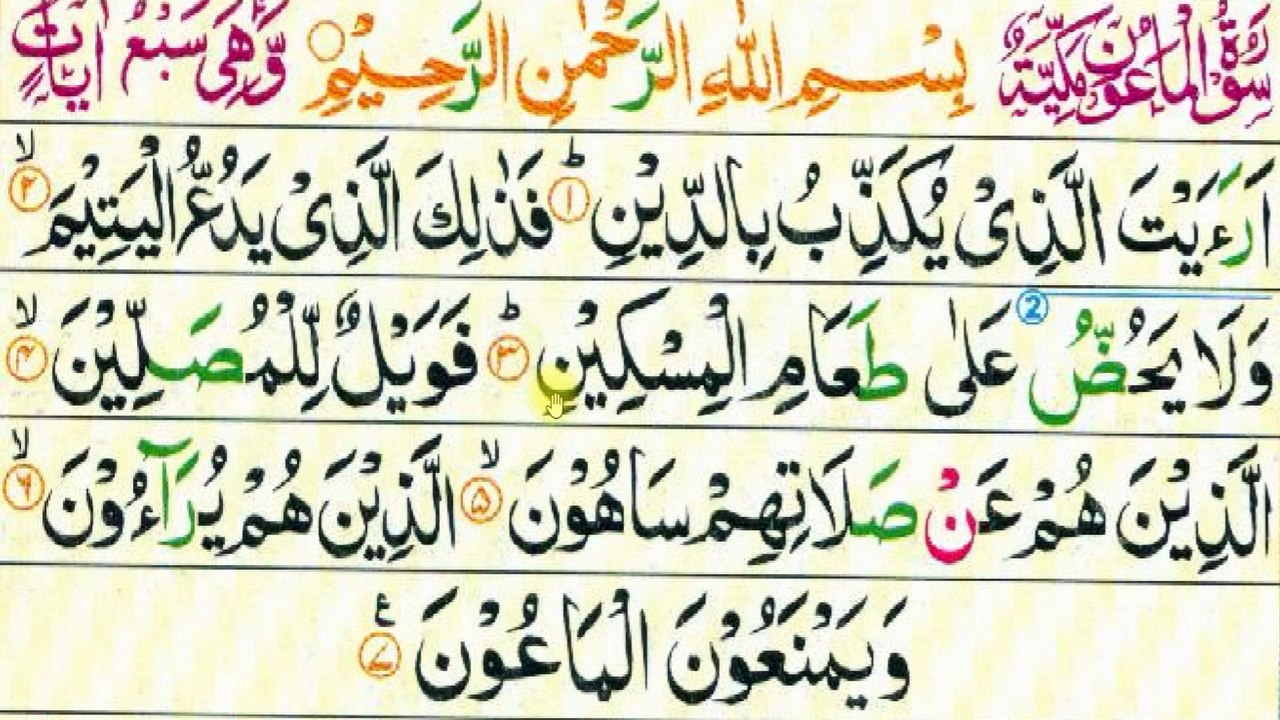 سُوْرَةُ الْمَاعُوْنِ مَكِّيَّةٌ بِسْمِ اللهِ الرَّحْمٰنِ الرَّحِيْمِ وَّهِىَ سَبْعُ اٰيَاتٍ
اَرَءَيْتَ الَّذِىْ يُكَذِّبُ بِالدِّيْنِ ؕ ۱ فَذٰلِكَ الَّذِىْ يَدُعُّ الْيَتِيْمَ ۙ ۲
وَلَا يَحُضُّ 2 عَلٰى طَعَامِ الْمِسْكِيْنِ ؕ ۳ فَوَيْلٌ لِّلْمُصَلِّيْنَ ۙ ۴
الَّذِيْنَ هُمْ عَنْ صَلَاتِهِمْ سَاهُوْنَ ۙ ۵ الَّذِيْنَ هُمْ يُرَآءُوْنَ ۙ ۶
وَيَمْنَعُوْنَ الْمَاعُوْنَ ۷ ع